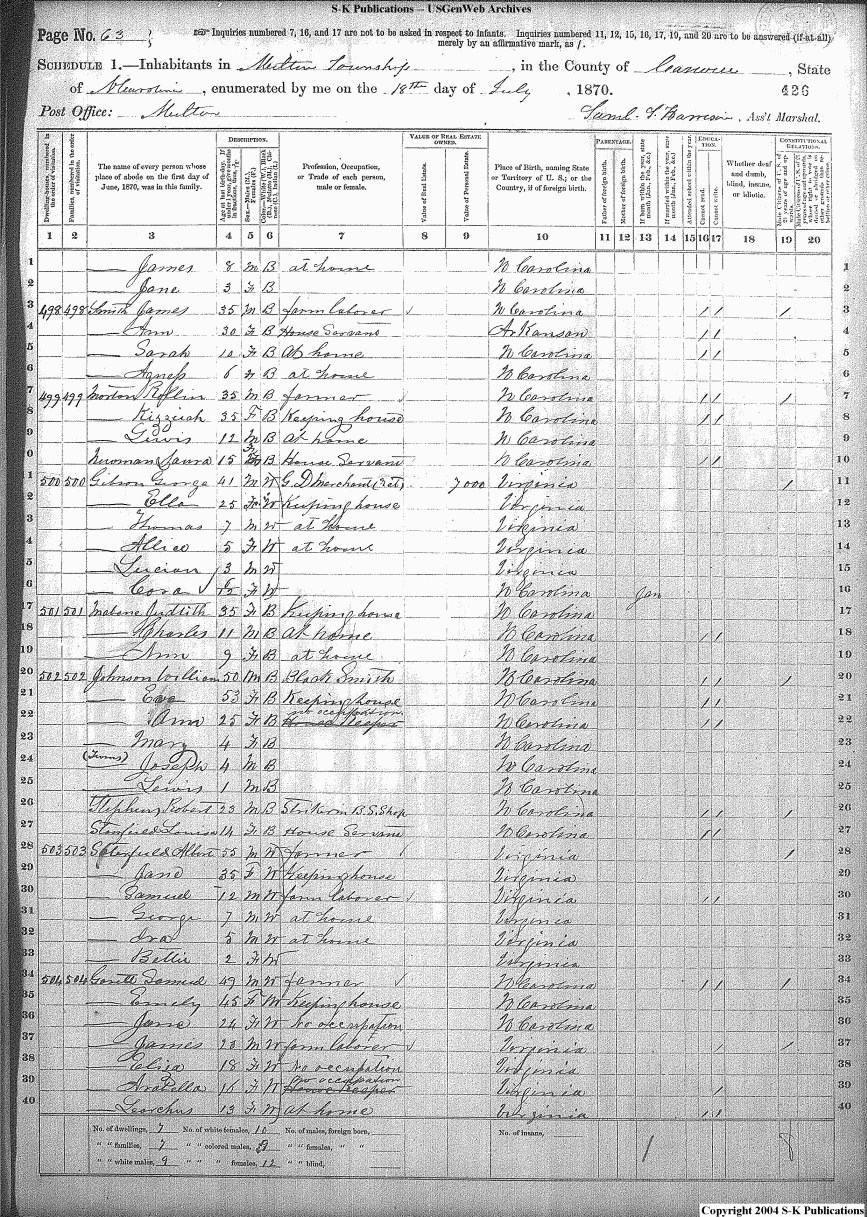 S-K Publications -- USGenWeb Archives
Page No. 63
Inquiries numbered 7, 16, and 17 are not to be asked in respect to infants. Inquiries numbered 11, 12, 15, 16, 17, 19, and 20 are to be answered (if at all) merely by an affirmative mark, as /.
SCHEDULE 1.—Inhabitants in Milton Township, in the County of Caswell, State
of N Carolina, enumerated by me on the 18th day of July, 1870. 426
Post Office: Milton Saml. Harrison, Ass't Marshal.
DESCRIPTION. VALUE OF REAL ESTATE OWNED. PARENTAGE. EDUCATION. CONSTITUTIONAL RELATIONS.
Dwelling-houses, numbered in the order of visitation.
Families, numbered in the order of visitation.
The name of every person whose place of abode on the first day of June, 1870, was in this family.
Profession, Occupation, or Trade of each person, male or female.
Value of Real Estate.
Value of Personal Estate.
Place of Birth, naming State or Territory of U. S.; or the Country, if of foreign birth.
Father of foreign birth.
Mother of foreign birth.
If born within the year, state month (Jan., Feb., &c.)
If married within the year, state month (Jan., Feb., &c.)
Attended school within the year.
Cannot read.
Cannot write.
Whether deaf and dumb, blind, insane, or idiotic.
1 2 3 4 5 6 7 8 9 10 11 12 13 14 15 16 17 18 19 20
1 — James 8 M B at home N Carolina 1
2 — Jane 3 F B N Carolina 2
3 498 498 Smith James 35 M B farm laborer N Carolina / / / 3
4 — Ann 30 F B House Servant Arkansas / / 4
5 — Sarah 10 F B At home N Carolina / / 5
6 — Agness 6 B at home N Carolina 6
7 499 499 Morton 35 M B farmer N Carolina / / / 7
8 — Kizziah 35 F B Keeping house N Carolina / / 8
9 — Lewis 12 M B At home N Carolina 9
0 Newman Laura 15 B House Servant N Carolina / / 10
1 500 500 Gibson George 41 M W G. D Merchant (Ret) 7000 Virginia / 11
2 — Ella 25 F W Keeping house Virginia 12
3 — Thomas 7 M W at home Virginia 13
4 — Allice 5 F W at home Virginia 14
5 — Lucian 3 M W Virginia 15
6 — Cora F W N Carolina Jan 16
17 501 501 Malone Judith 35 F B Keeping house N Carolina
18 — Charles 11 M B At home N Carolina / / 18
19 — Ann 9 F B at home N Carolina 19
20 502 502 Johnson William 50 M B Black Smith N Carolina / / / 20
21 — 53 F B Keeping house N Carolina / / 21
22 — Ann 25 F B no occupation House Keeper N Carolina / / 22
23 — Mary 4 F B N Carolina 23
24 (Twins) — Joseph 4 M B N Carolina 24
25 — Lewis 1 M B N Carolina 25
26 Stephens Robert 23 M B Striker in B.S. Shop N Carolina / / / 26
27 Stanfield Louisa 14 F B House Servant N Carolina / / 27
28 503 503 Satterfield Albert 55 M W farmer Virginia / 28
29 — Jane 35 F W Keeping house Virginia 29
30 — Samuel 12 M W farm laborer Virginia / / 30
31 — George 7 M W at home Virginia 31
32 — Ira 5 M W at home Virginia 32
33 — Bettie 2 F W Virginia 33
34 504 504 Samuel 49 M W farmer N Carolina / / / 34
35 — Emely 45 F W Keeping house N Carolina 35
36 — Jane 24 F W No occupation N Carolina 36
37 — James 20 M W farm laborer Virginia / / 37
38 — Eliza 18 F W No occupation Virginia 38
39 — Arabella 16 F W no occupation House Keeper Virginia / 39
40 — Learchus 13 F W at home Virginia / / 40
No. of dwellings, 7 No. of white females, 10 No. of males, foreign born, No. of insane,
" " families, 7 " " colored males, 9 " " females, " "
" " white males, 9 " " " females, 12 " " blind,
1 8
Copyright 2004 S-K Publications